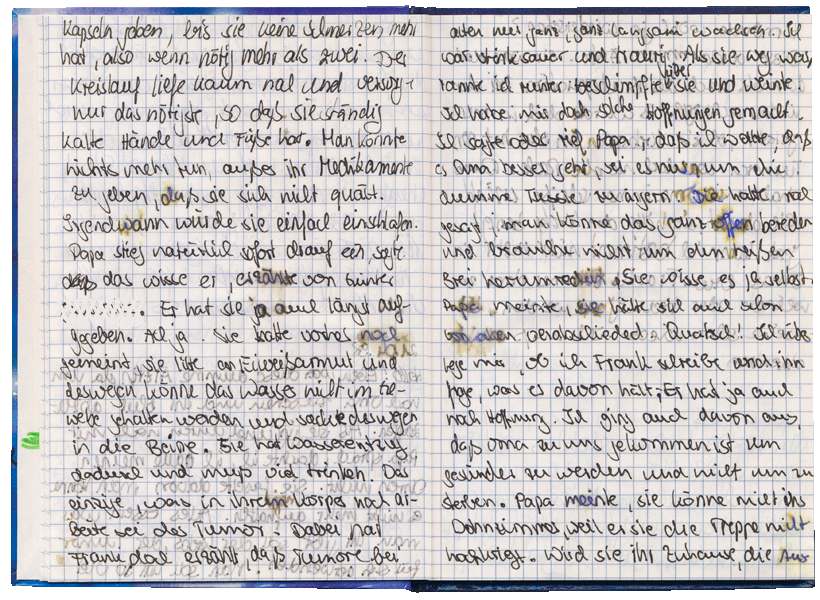 Kapseln geben, bis sie keine Schmerzen mehr
hat, also wenn nötig mehr als zwei. Der
Kreislauf liefe kaum nal und versorg-
nur das nötigste, so daß sie ständig
kalte Hände und Füße hat. Man könnte
nichts mehr tun, außer ihr Medikamente
zu geben, daß sie sich nicht quält.
Irgendwann würde sie einfach einschlafen.
Papa stieg natürlich sofort drauf ein, sagte
daß das wisse er, erzählte von Günter
. Er hat sie ja auch längst auf-
ggeben. Ach ja. Sie hatte vorher noch
gemeint sie litte an Eiweißarmut und
deswegen könne das Wasser nicht im Ge-
webe gehalten werden und sackte deswegen
in die Beine. Sie hat Wasserentzug
dadurch und muß viel trinken. Das
einzige, was in ihrem Körper noch ar-
beite sei der Tumor. Dabei hat
Frank doch erzählt, daß Tumore bei
alten nur ganz, ganz langsam wachsen. Ich
war stinksauer und traurig. Als sie weg war,
rannte ich runter beschimpfte sie über und weinte.
Ich habe mir doch solche Hoffnungen gemacht.
Ich sagte Papa, daß ich wollte, daß
es Oma besser geht, sei es nur um die
dumme zu ärgern. Die hatte mal
gesagt, man könne das ganz offen bereden
und bräuchte nicht um den heißen
Brei herumreden, Sie wisse es ja selbst.
Papa meinte, sie hätte sich auch schon
von allen verabschiedet. Quatsch! Ich über-
lege mir, ob ich Frank schreibe und ihn
frage, was er davon hält; Er hat ja auch
noch Hoffnung. Ich ging auch davon aus,
daß Oma zu uns gekommen ist um
gesünder zu werden und nicht um zu
sterben. Papa meinte, sie könne nicht ins
Wohnzimmer, weil er sie die Treppe nicht
hochkriegt. Wird sie ihr Zuhause, die nur